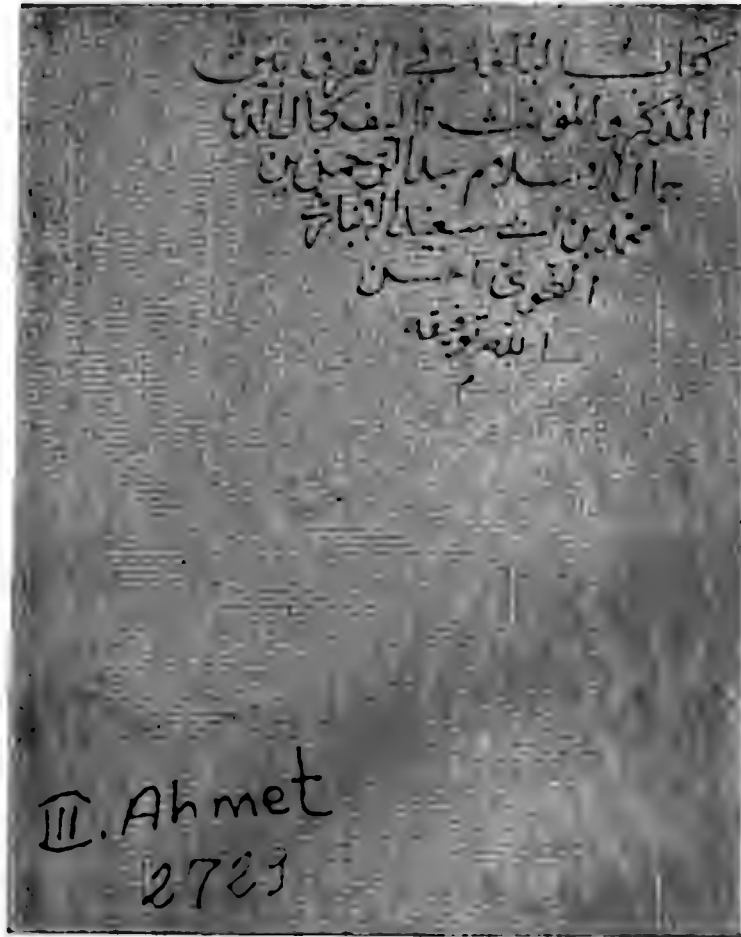 كتاب البلغة في الفرق بين
المذكر والمؤنث تاليف كمال الدين
جمال الاسلام عبد الرحمن بن
محمد بن ابي سعيد الانباري
النحوي احسن
الله توفيقه
م
III. Ahmet
2729